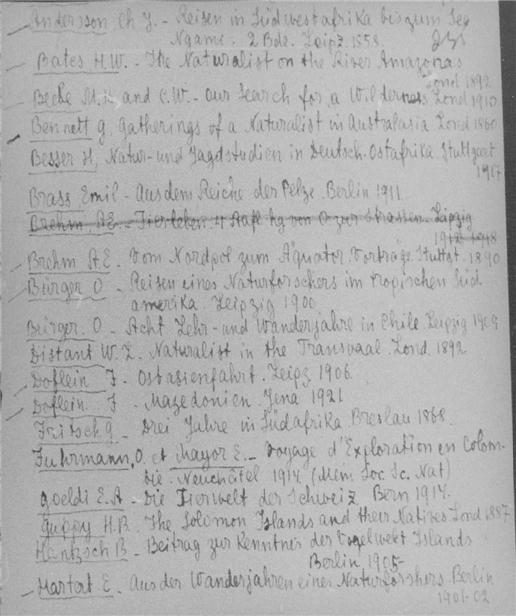 Andersson Ch J. - Reisen in Südwestafrika bis zum See
Ngami. 2 Bde. Leipz. 1858.
Bates H.W. - The Naturalist on the River Amazonas
Lond 1892
Becke M.R. and C.W. - Our Search for a Wilderness Lond 1910
Bennett G. Gatherings of a Naturalist in Australasia Lond 1860
Besser H, Natur- und Jagdstudien in Deutsch. Ostafrika. Stuttgart
1917
Brass Emil - Aus dem Reiche der Pelze. Berlin 1911.
Brehm A.E. - Tierleben. 4 Aufl. hg von O zur Strassen. Leipzig
Brehm A.E. - Vom Nordpol zum Äquator. Vorträge. Stuttgt. 1890
Bürger O - Reisen eines Naturforschers im tropischen Süd
amerika. Leipzig 1900
Bürger. O - Acht Lehr- und Wanderjahre in Chile. Leipzig 1909
Distant W.L. Naturalist in the Transvaal. Lond. 1892
Doflein F - Ostasienfahrt. Leipz 1906
Doflein. F - Mazedonien Jena 1921
Fritsch G. - Drei Jahre in Südafrika Breslau 1868.
Fuhrmann, O. et Mayor E. - Voyage d'Exploration en Colom-
bie. Neuchâtel 1914 (Mem. Soc. Sc. Nat)
Goeldi E.A - Die Tierwelt der Schweiz. Bern 1914.
Guppy H.B. The Solomon Islands and their Natives Lond 1887
Hantzsch B - Beitrag zur Kenntnis der Vogelwelt Islands
Berlin 1905-
Hartert E. Aus der Wanderjahren eines Naturforshers. Berlin
1901-02